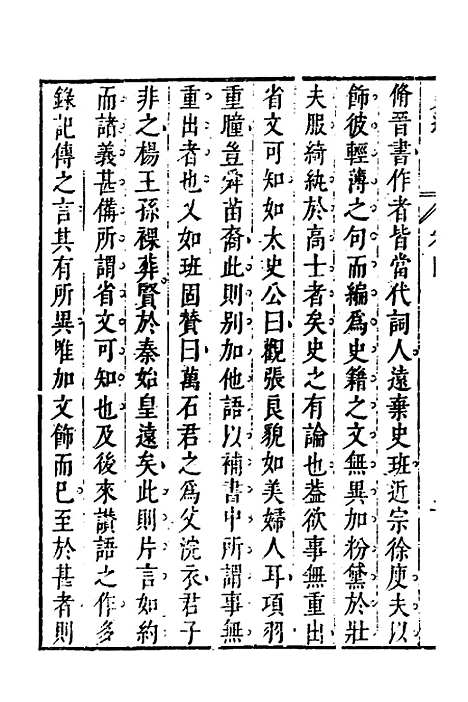 脩晉書作者皆當代詞人遠棄史班近宗徐庾夫以
飾彼輕薄之句而編爲史籍之文無異加粉黛於壯
夫服綺紈於高士者矣史之有論也蓋欲事無重出
省文可知如太史公曰觀張良貌如美婦人耳項羽
重瞳豈舜苗裔此則别加他語以補書中所謂事無
重出者也又如班固贊曰萬石君之爲父浣衣君子
非之楊王孫祼葬賢於秦始皇遠矣此則片言如約
而諸義甚備所謂省文可知也及後來讚語之作多
錄記傳之言其有所異唯加文飾而已至於甚者則